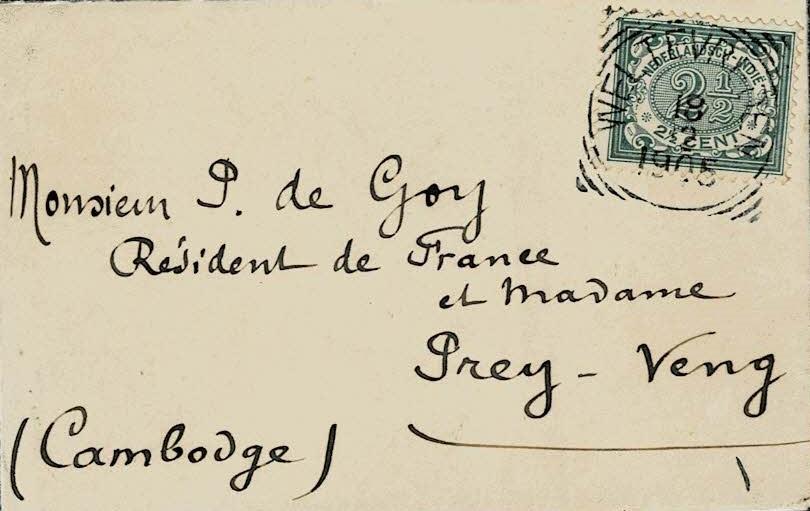 NEDERLANDSCH-INDIË
2½
2½ CENT
WELTEVREDEN
18
2
190
Monsieur P. de Goy
Résident de France
et Madame
Prey - Veng
(Cambodge)